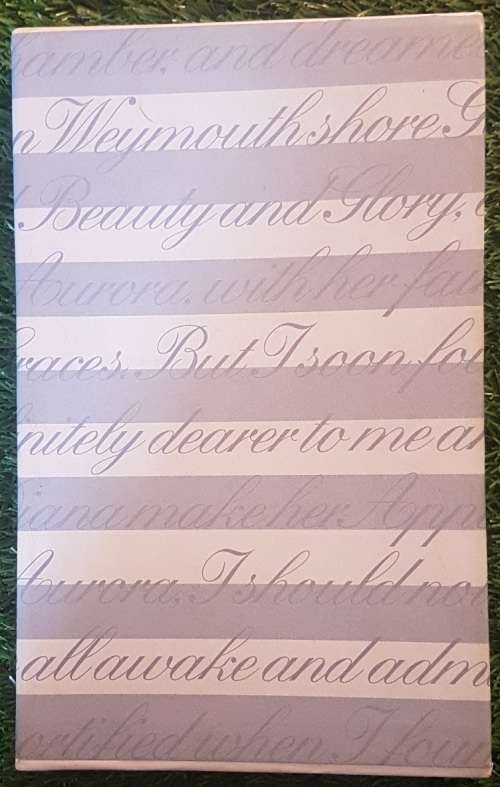 hamber, and dreame
n Weymouth shore G
Beauty and Glory,
Aurora, with her fair
races. But I soon fou
nitely dearer to me an
iana make her Appe
Aurora, I should no
all awake and adm
ortified when I foun